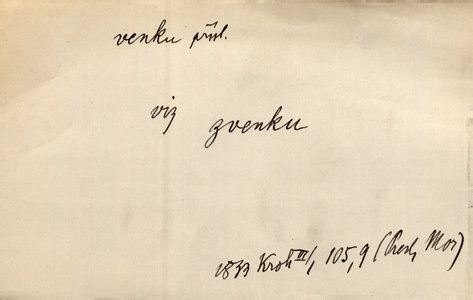 venku přísl.
viz zvenku
1833 Krok III/, 105,9 (Presl, Mor)